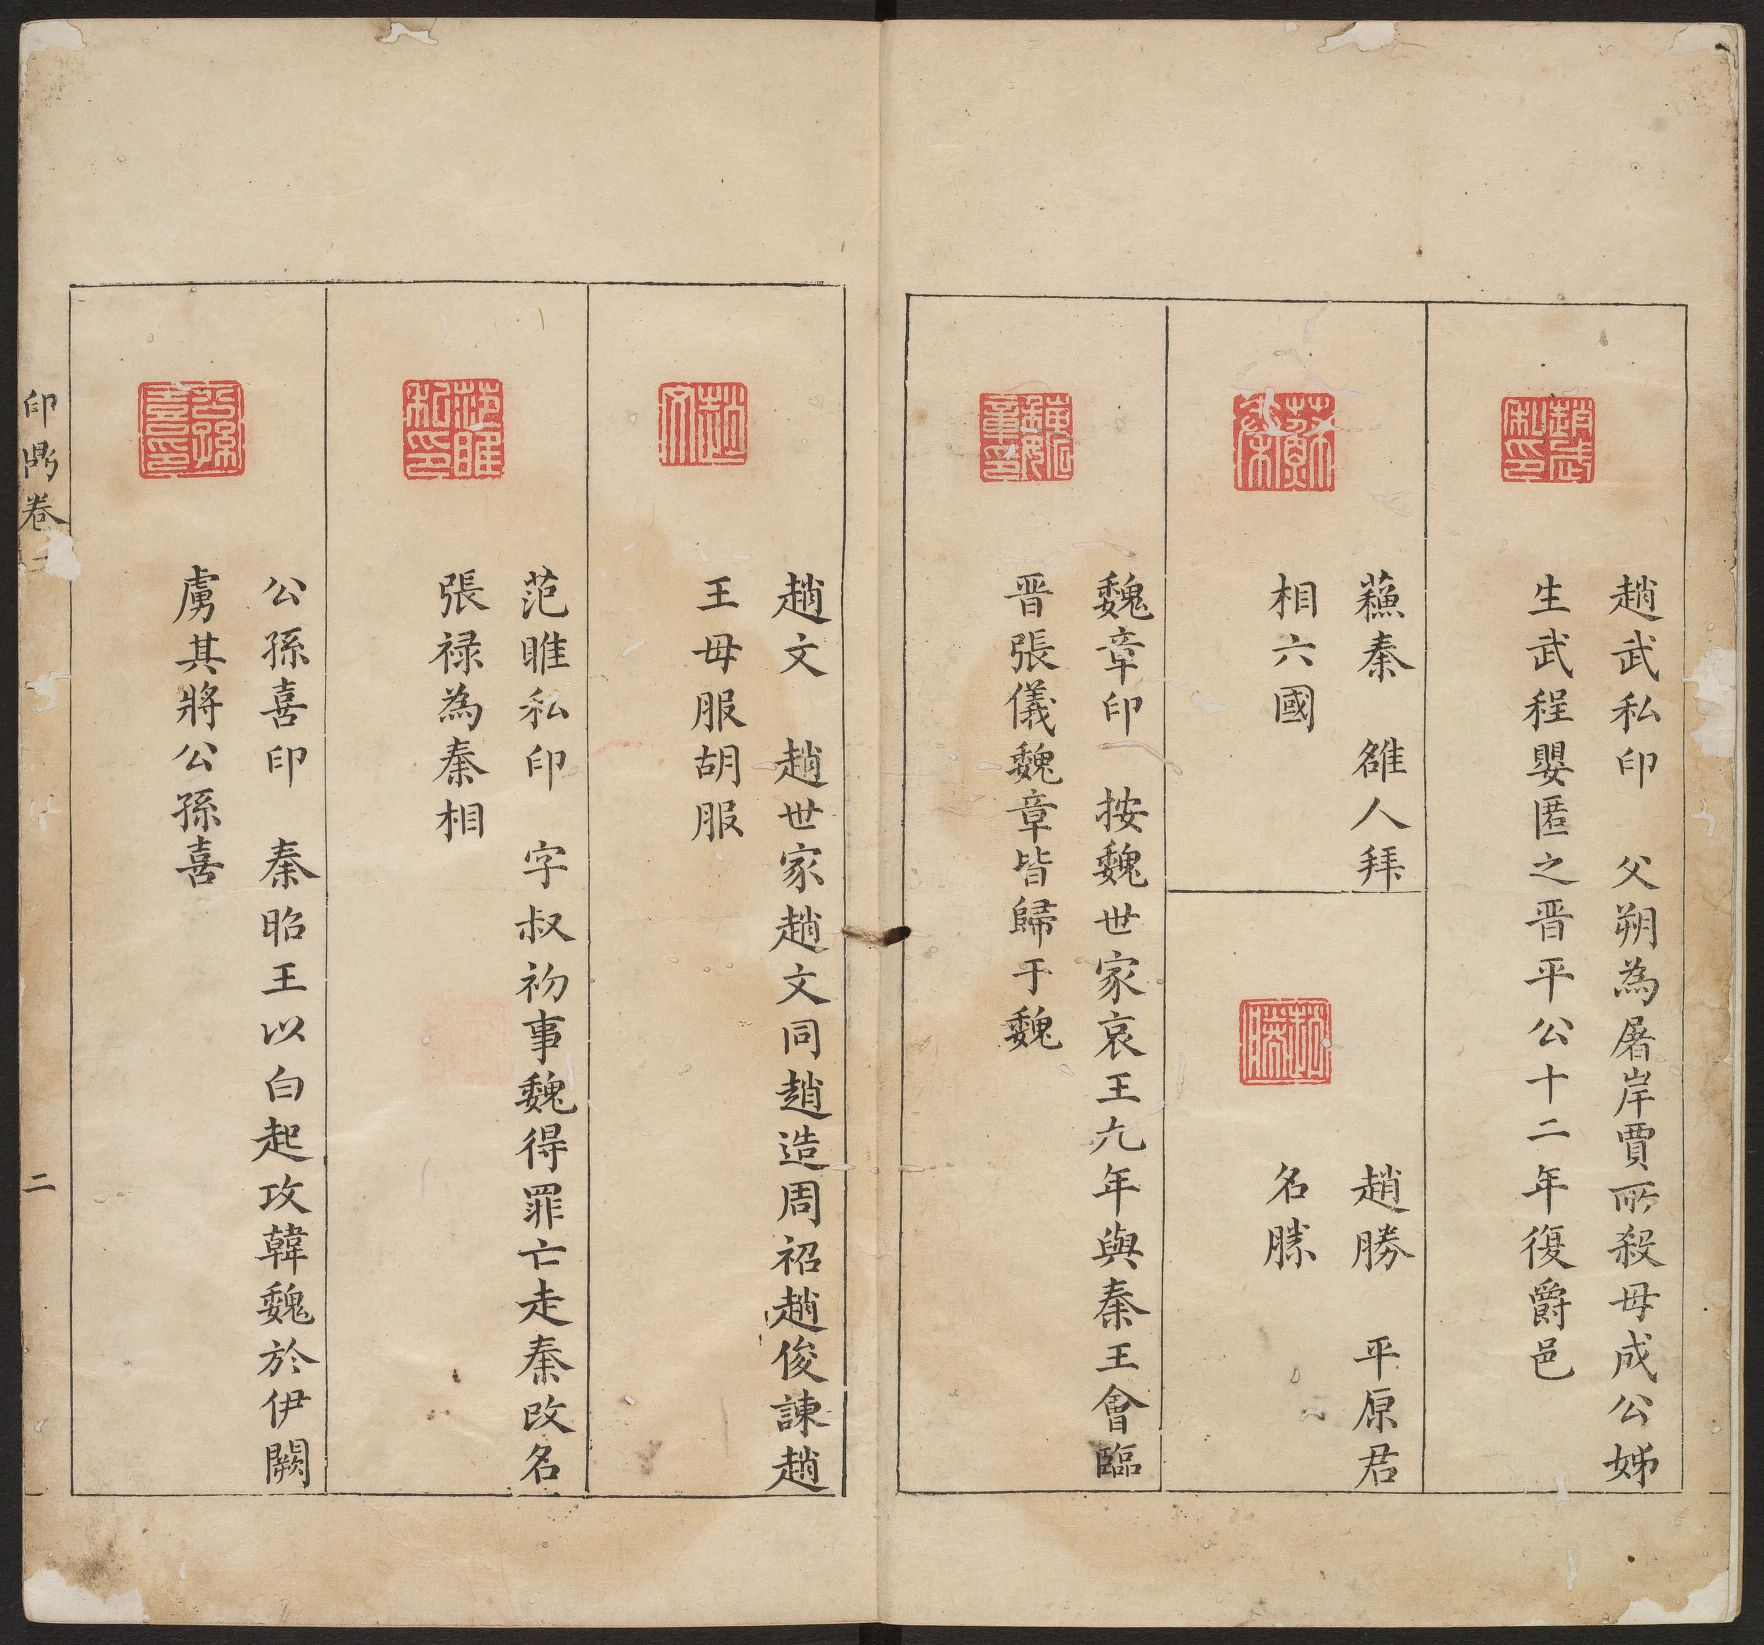 趙武私印
趙武私印　父朔為屠岸賈所殺母成公姊
生武程嬰匿之晋平公十二年復爵邑
蘇秦
蘓秦　雒人拜
相六國
趙勝
趙勝　平原君
名勝
魏章印
魏章印　按魏世家哀王九年與秦王會臨
晋張儀魏章皆歸于魏
趙文
趙文　趙世家趙文同趙造周袑趙俊諫趙
王毋服胡服
范睢私印
范睢私印　字叔初事魏得罪亡走秦改名
張禄為秦相
公孫喜印
公孫喜印　秦昭王以白起攻韓魏於伊闕
虜其將公孫喜
印鼎卷
二